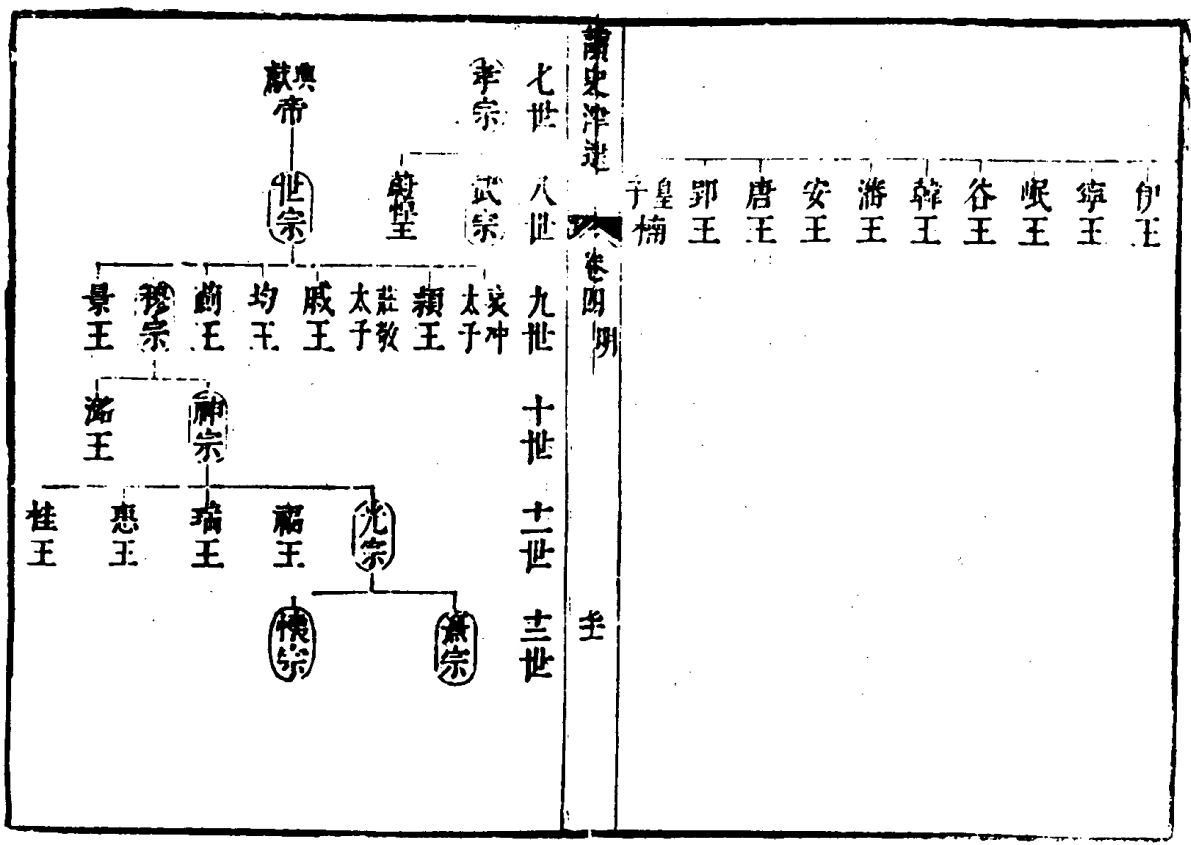 伊王
寧王
岷王
谷王
韓王
瀋王
安王
唐王
郢王
皇子楠
讀史津逮
卷四 明
七世
孝宗
興獻帝
八世
武宗
蔚悼王
世宗
九世
哀冲太子
潁王
莊敬太子
戚王
均王
薊王
穆宗
景王
十世
神宗
潞王
十一世
光宗
福王
瑞王
惠王
桂王
十二世
熹宗
懷宗